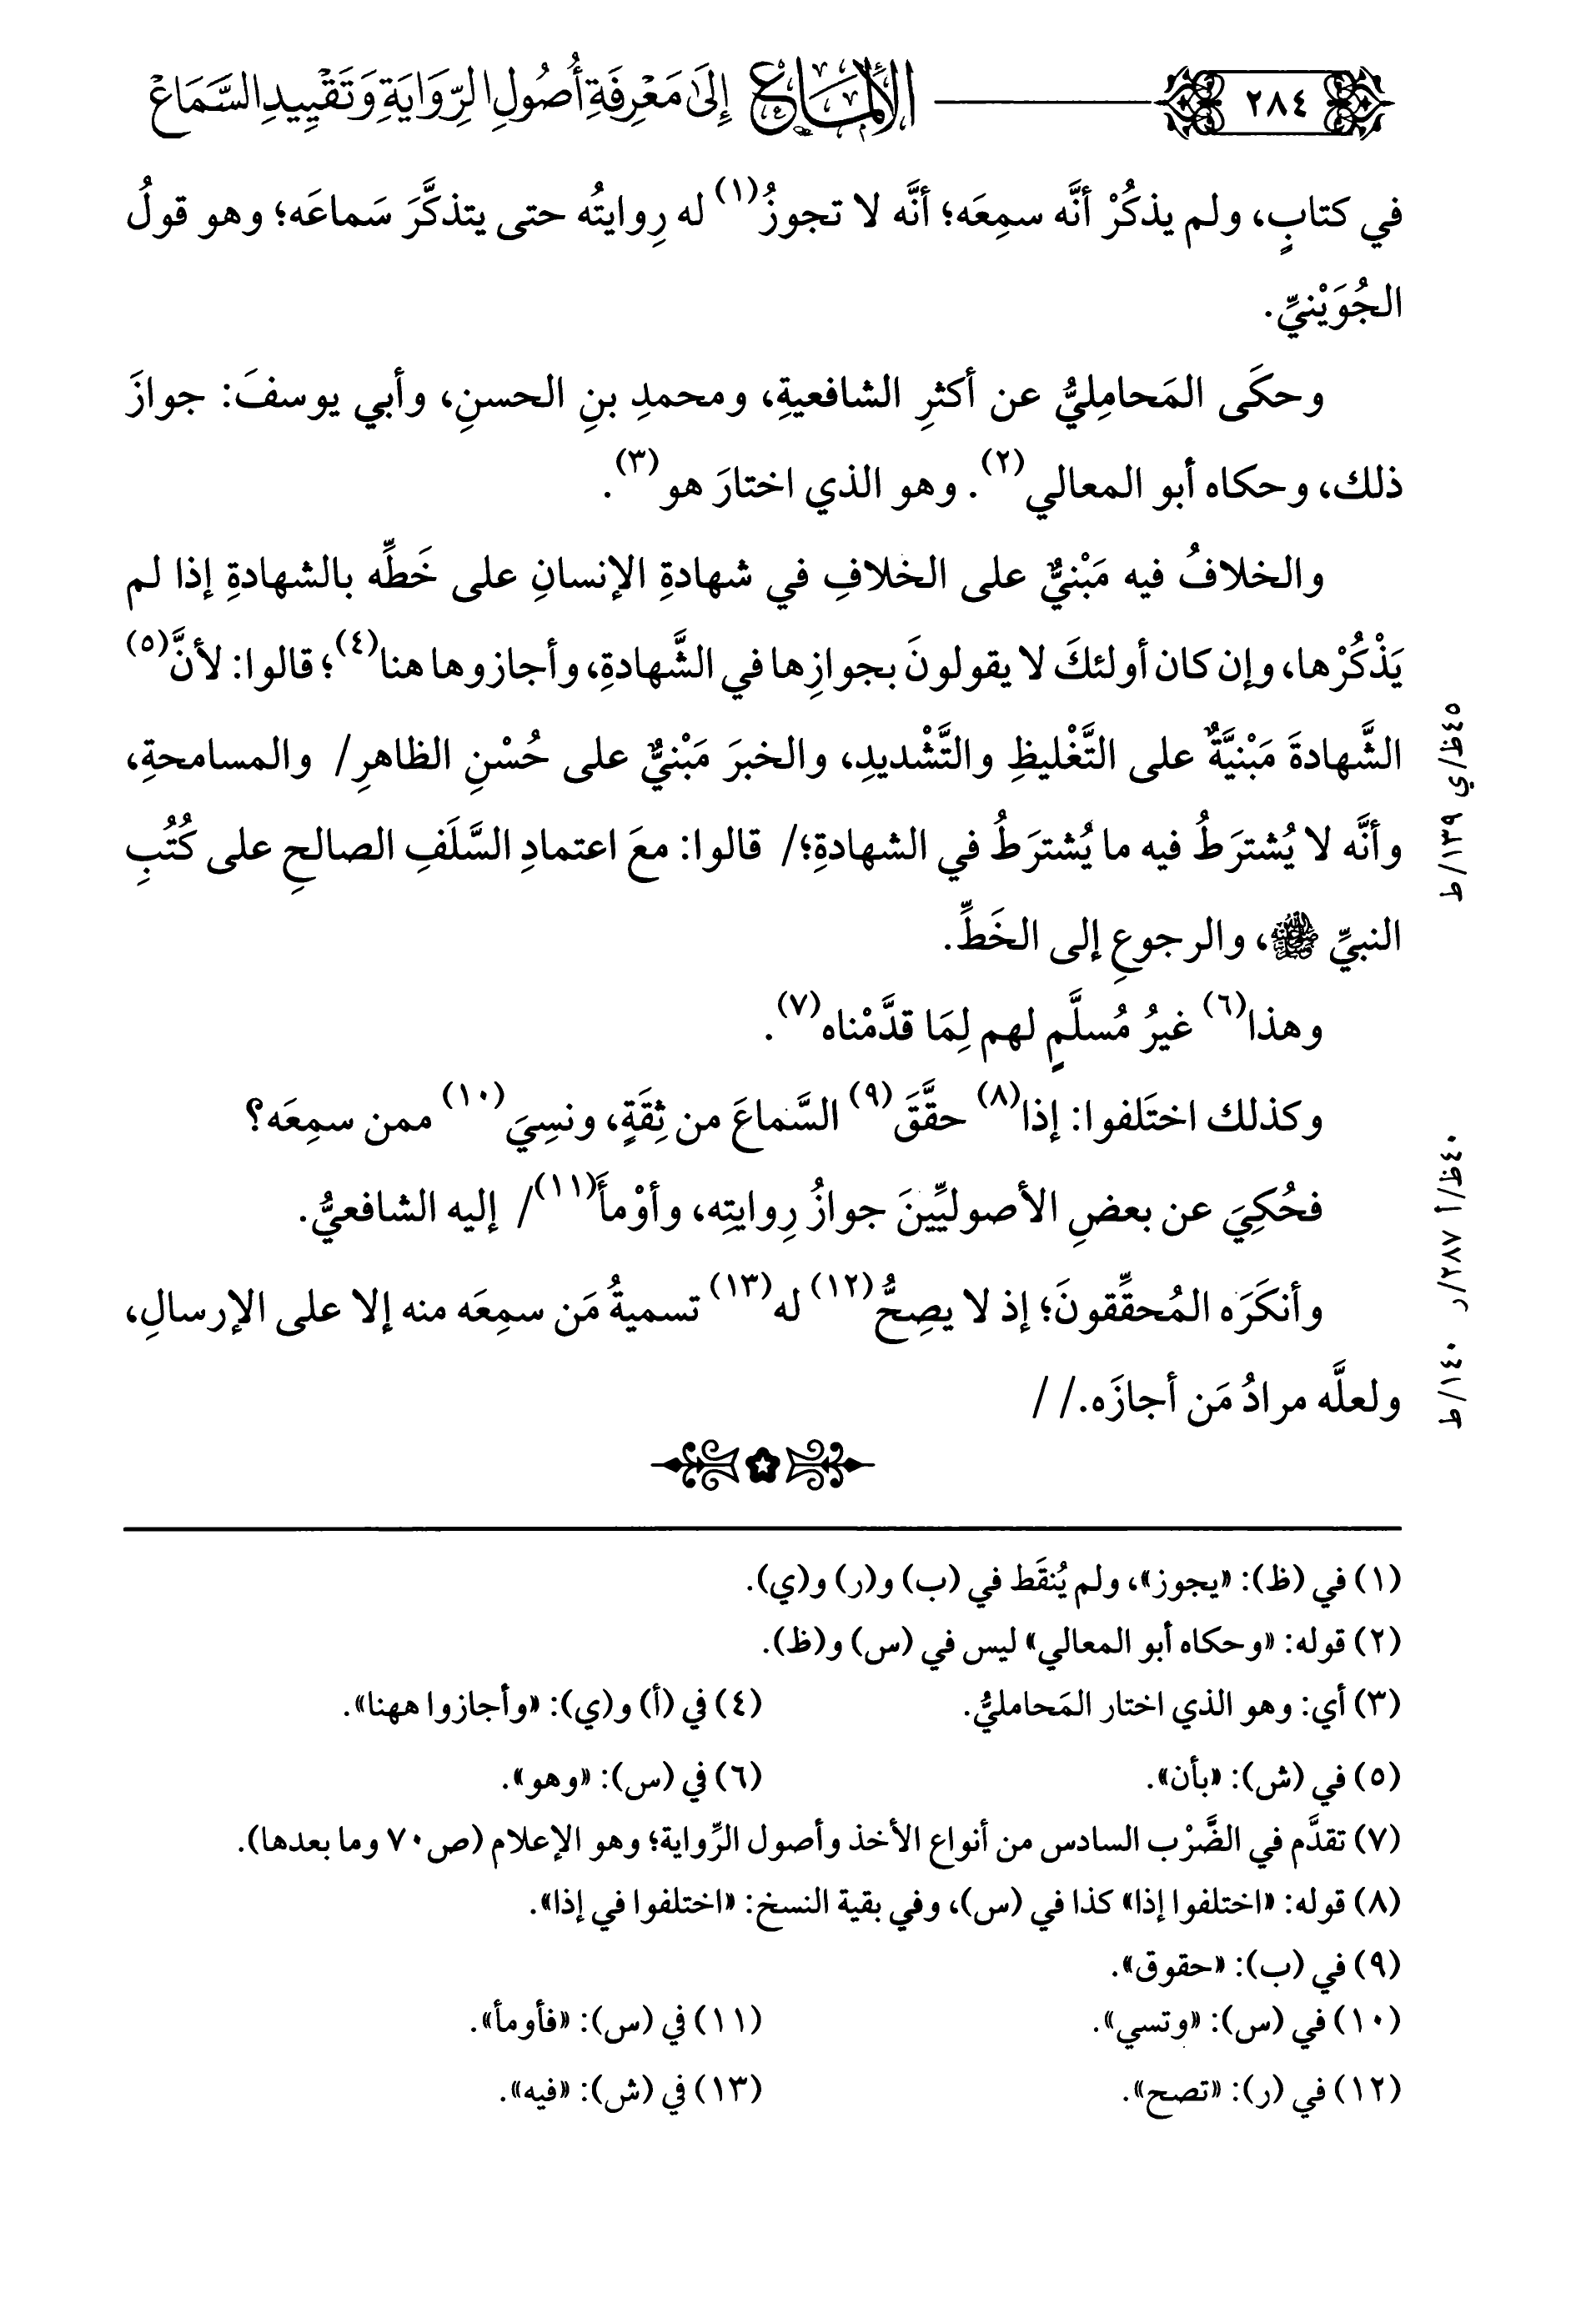 ٢٨٤ الإلماع إِلَىٰ مَعْرِفَةِ أُصُولِ الرِّوَايَةِ وَتَقْيِيدِ السَّمَاعْ
في كتابٍ، ولم يذكُرْ أنَّه سمِعَه؛ أنَّه لا تجوزُ(١) له رِوايتُه حتى يتذكَّرَ سَماعَه؛ وهو قولُ
الجُوَيْنيِّ.
وحكَى المَحامِليُّ عن أكثرِ الشافعيةِ، ومحمدِ بنِ الحسنِ، وأبي يوسفَ: جوازَ
ذلك، وحكاه أبو المعالي(٢). وهو الذي اختارَ هو(٣).
والخلافُ فيه مَبْنيٌّ على الخلافِ في شهادةِ الإنسانِ على خَطِّه بالشهادةِ إذا لم
يَذْكُرْها، وإن كان أولئكَ لا يقولونَ بجوازِها في الشَّهادةِ، وأجازوها هنا(٤)؛ قالوا: لأنَّ(٥)
الشَّهادةَ مَبْنيَّةٌ على التَّغْليظِ والتَّشْديدِ، والخبرَ مَبْنيٌّ على حُسْنِ الظاهرِ/ والمسامحةِ،
٤٥ظ/ي
وأنَّه لا يُشترَطُ فيه ما يُشترَطُ في الشهادةِ؛/ قالوا: معَ اعتمادِ السَّلَفِ الصالحِ على كُتُبِ
١٣٩/ط
النبيِّ ﷺ، والرجوعِ إلى الخَطِّ.
وهذا(٦) غيرُ مُسلَّمٍ لهم لِمَا قدَّمْناه(٧).
وكذلك اختَلفوا: إذا(٨) حقَّقَ(٩) السَّماعَ من ثِقَةٍ، ونسِيَ(١٠) ممن سمِعَه؟
٤٠ظ/أ
فحُكِيَ عن بعضِ الأصوليِّينَ جوازُ رِوايتِه، وأوْمأَ(١١)/ إليه الشافعيُّ.
٢٨٧/ر
وأنكَرَه المُحقِّقونَ؛ إذ لا يصِحُّ(١٢) له(١٣) تسميةُ مَن سمِعَه منه إلا على الإرسالِ،
ولعلَّه مرادُ مَن أجازَه.//
١٤٠/ط
(١) في (ظ): «يجوز»، ولم يُنقَط في (ب) و(ر) و(ي).
(٢) قوله: «وحكاه أبو المعالي» ليس في (س) و(ظ).
(٣) أي: وهو الذي اختار المَحامليُّ. (٤) في (أ) و(ي): «وأجازوا ههنا».
(٥) في (ش): «بأن». (٦) في (س): «وهو».
(٧) تقدَّم في الضَّرْب السادس من أنواع الأخذ وأصول الرِّواية؛ وهو الإعلام (ص٧٠ وما بعدها).
(٨) قوله: «اختلفوا إذا» كذا في (س)، وفي بقية النسخ: «اختلفوا في إذا».
(٩) في (ب): «حقوق».
(١٠) في (س): «وتسي». (١١) في (س): «فأومأ».
(١٢) في (ر): «تصح». (١٣) في (ش): «فيه».